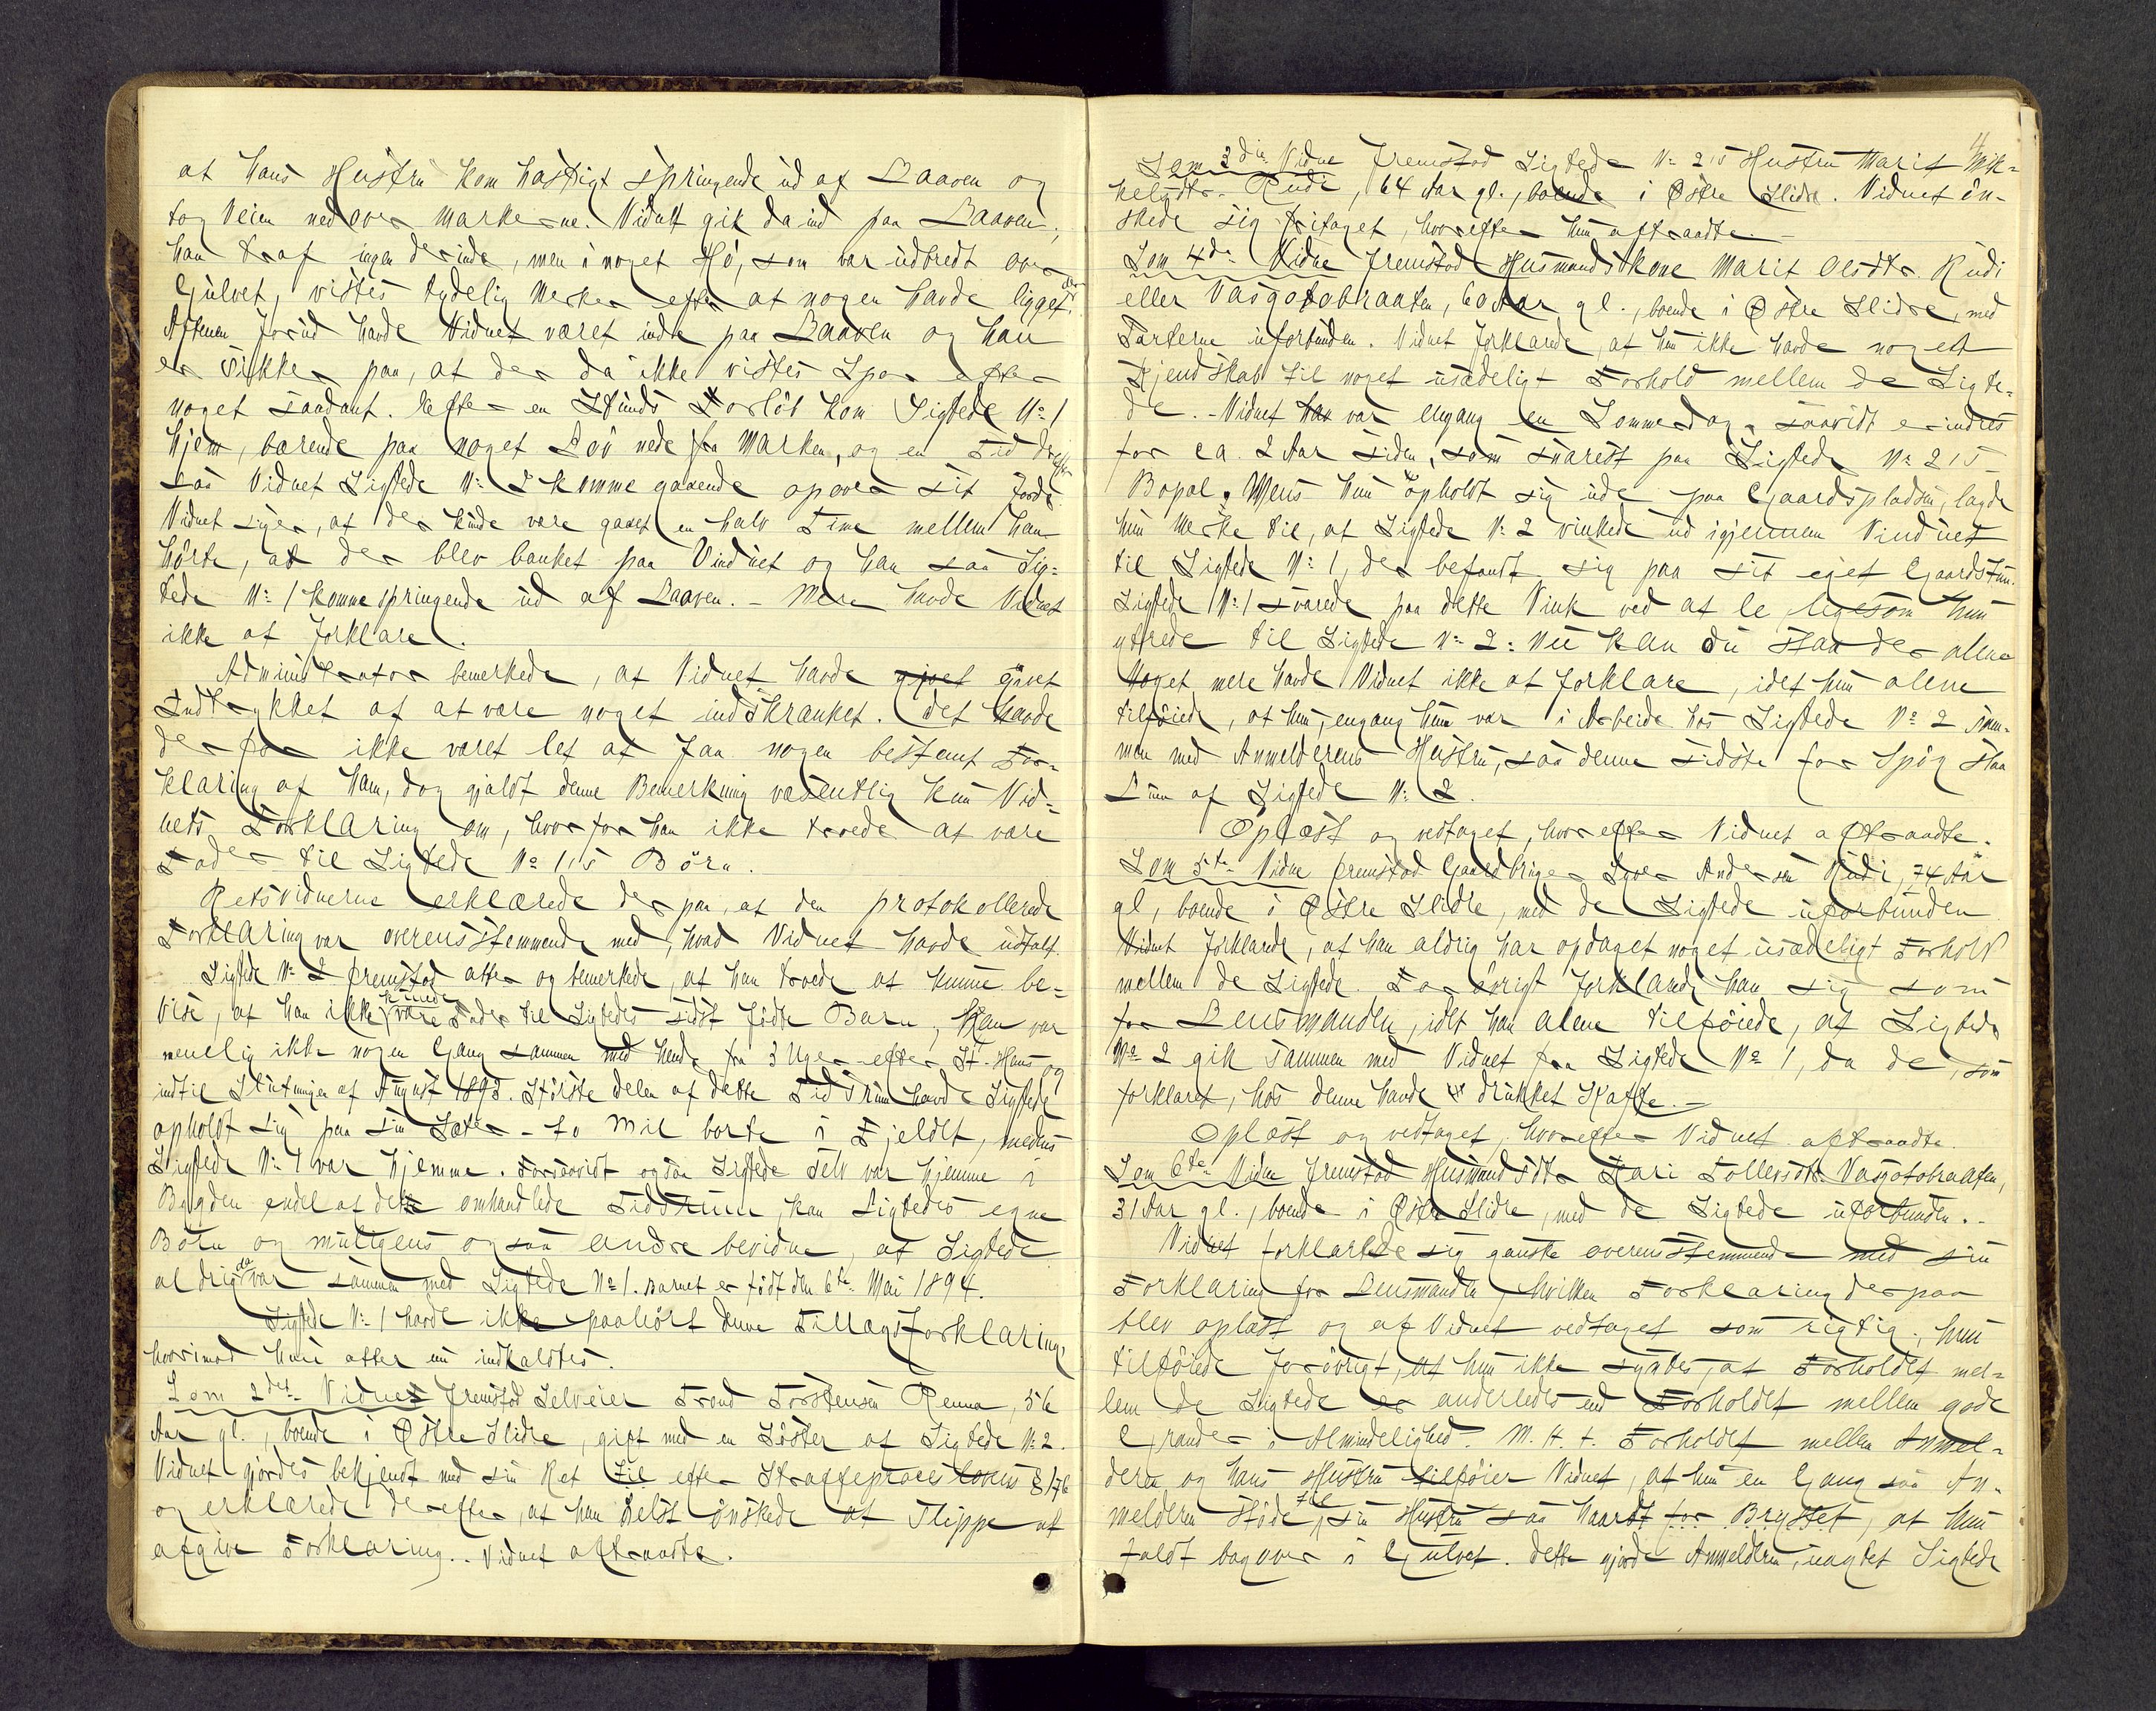 at hans Hustru kom hastigt springende ud af Laaven og
tog Veien nedover Markerne. Vidnet gik da ind paa Laaven;
han traf ingen derinde, men i noget Hö, som var udbredt over
Gulvet, vistes tydelig Merker efter at nogen havde ligget der.
Aftenen forud havde Vidnet været inde paa Laaven og han
er sikker paa, at der da ikke vistes Spor efter
noget saadant. Efter en Stunds Forløb kom Sigtede No 1
hjem, bærende paa noget Löv nede fra Marken, og en Tid derefter
saa Vidnet Sigtede No 2 komme gaaende opover sit Jorde.
Vidnet siger, at der kunde være gaaet en halv Time mellem han
hörte, at der blev banket paa Vinduet og han saa Sig-
tede No 1 komme springende ud af Laaven. - Mere havde Vidnet
ikke at forklare.
Administrator bemerkede, at Vidnet havde givet givet
Indtrykket af at være noget indskrænket. Det havde
derfor ikke været let at faa nogen bestemt For-
klaring af ham, dog gjaldt denne Bemerkning væsentlig kun Vid-
nets Forklaring om, hvorfor han ikke troede at være
Fader til Sigtede No 1's Börn.
Retsvidnerne erklærede derpaa, at den protokollerede
Forklaring var overensstemmende med, hvad Vidnet havde udtalt.
Sigtede No 2 fremstod atter og bemerkede, at han troede at kunne be-
vise, at han ikke kunde være Fader til Sigtedes sidst födte Barn, han var
nemlig ikke nogen Gang sammen med hende fra 3 Uger efter St. Hans og
indtil Slutningen af August 1893. Störste delen af dette Tidsrum havde Sigtede
opholdt sig paa sin Sæter - to Mil borte i Fjeldet, medens
Sigtede No 1 var hjemme. Forsaavidt ogsaa Sigtede selv var hjemme i
Bygden endel af dette omhandlede Tidsrum, kan Sigtedes egne
Börn og muligens ogsaa andre bevidne, at Sigtede
aldrig da var sammen med Sigtede No 1. Barnet er födt den 6te Mai 1894.
Sigtede No 1 havde ikke paahört denne Tillægsforklaring,
hvorimod hun atter nu indkaldtes.
Som 2det Vidnet fremstod Selveier Trond Torstensen Renna, 56
Aar gl., boende i Østre Slidre, gift med en Söster af Sigtede No 2.
Vidnet gjordes bekjendt med sin Ret til efter Straffeproceslovens § 176
og erklærede derefter, at han helst önskede at slippe at
afgive Forklaring. Vidnet aftraadte.
Som 3die Vidne fremstod Sigtede No 2's Hustru Marit Mik-
kelsdtr. Rudi, 64 Aar gl., boende i Østre Slidre. Vidnet ön-
skede sig fritaget, hvorefter hun aftraadte. -
Som 4de Vidne fremstod Husmandskone Marit Olsdtr. Rudi
eller Vasgotobraaten, 60 Aar gl., boende i Østre Slidre, med
Parterne uforbunden. Vidnet forklarede, at hun ikke havde noget
Kjendskab til noget usædeligt Forhold mellem de Sigte-
de. - Vidnet var engang en Sommerdag, saavidt erindres
for ca. 2 Aar siden, som snarest paa Sigtede No 2's
Bopæl. Mens hun opholdt sig ude paa Gaardspladsen, lagde
hun Merke til, at Sigtede No 2 vinkede ud igjennem Vinduet
til Sigtede No 1, der befandt sig paa sit eget Gaardstun.
Sigtede No 1 svarede paa dette Vink ved at le ligesom hun
ytrede til Sigtede No 2: Nu kan du staa der alene
Noget mere havde Vidnet ikke at forklare, idet hun alene
tilföiede, at hun, engang hun var i Arbeide hos Sigtede No 2 sam-
men med Anmelderens Hustru, saa denne sidste for Spög slaa
Luen af Sigtede No 2.
Oplæst og vedtaget, hvorefter Vidnet aftraadte.
Som 5te Vidne fremstod Gaardbruger Iver Andersen Rudi, 74 Aar
gl, boende i Østre Slidre, med de Sigtede uforbunden
Vidnet forklarede, at han aldrig har opdaget noget usædeligt Forhold
mellem de Sigtede. Forövrigt forklarede han sig som
for Lensmanden, idet han alene tilföiede, at Sigtede
No 2 gik sammen med Vidnet fra Sigtede No 1, da de, som
forklaret, hos denne havde drukket Kaffe. -
Oplæst og vedtaget, hvorefter Vidnet aftraadte.
Som 6te Vidne fremstod Husmandsdtr. Kari Tollefsdtr. Vasgotobraaten,
31 Aar gl., boende i Østre Slidre, med de Sigtede uforbunden. -
Vidnet forklarede sig ganske overensstemmende med sin
Forklaring for Lensmanden, hvilken Forklaring derpaa
blev oplæst og af Vidnet vedtaget som rigtig; hun
tilföiede forövrigt, at hun ikke syntes, at Forholdet mel-
lem de Sigtede er anderledes end Forholdet mellem gode
Grander i Almindelighed. M. H. t. Forholdet mellem Anmel-
deren og hans Hustru tilföier Vidnet, at hun en Gang saa An-
melderen stöde til sin Hustru saa haardt for Brystet, at hun
faldt bagover i Gulvet. Dette gjorde Anmelderen, uagtet Sigtede